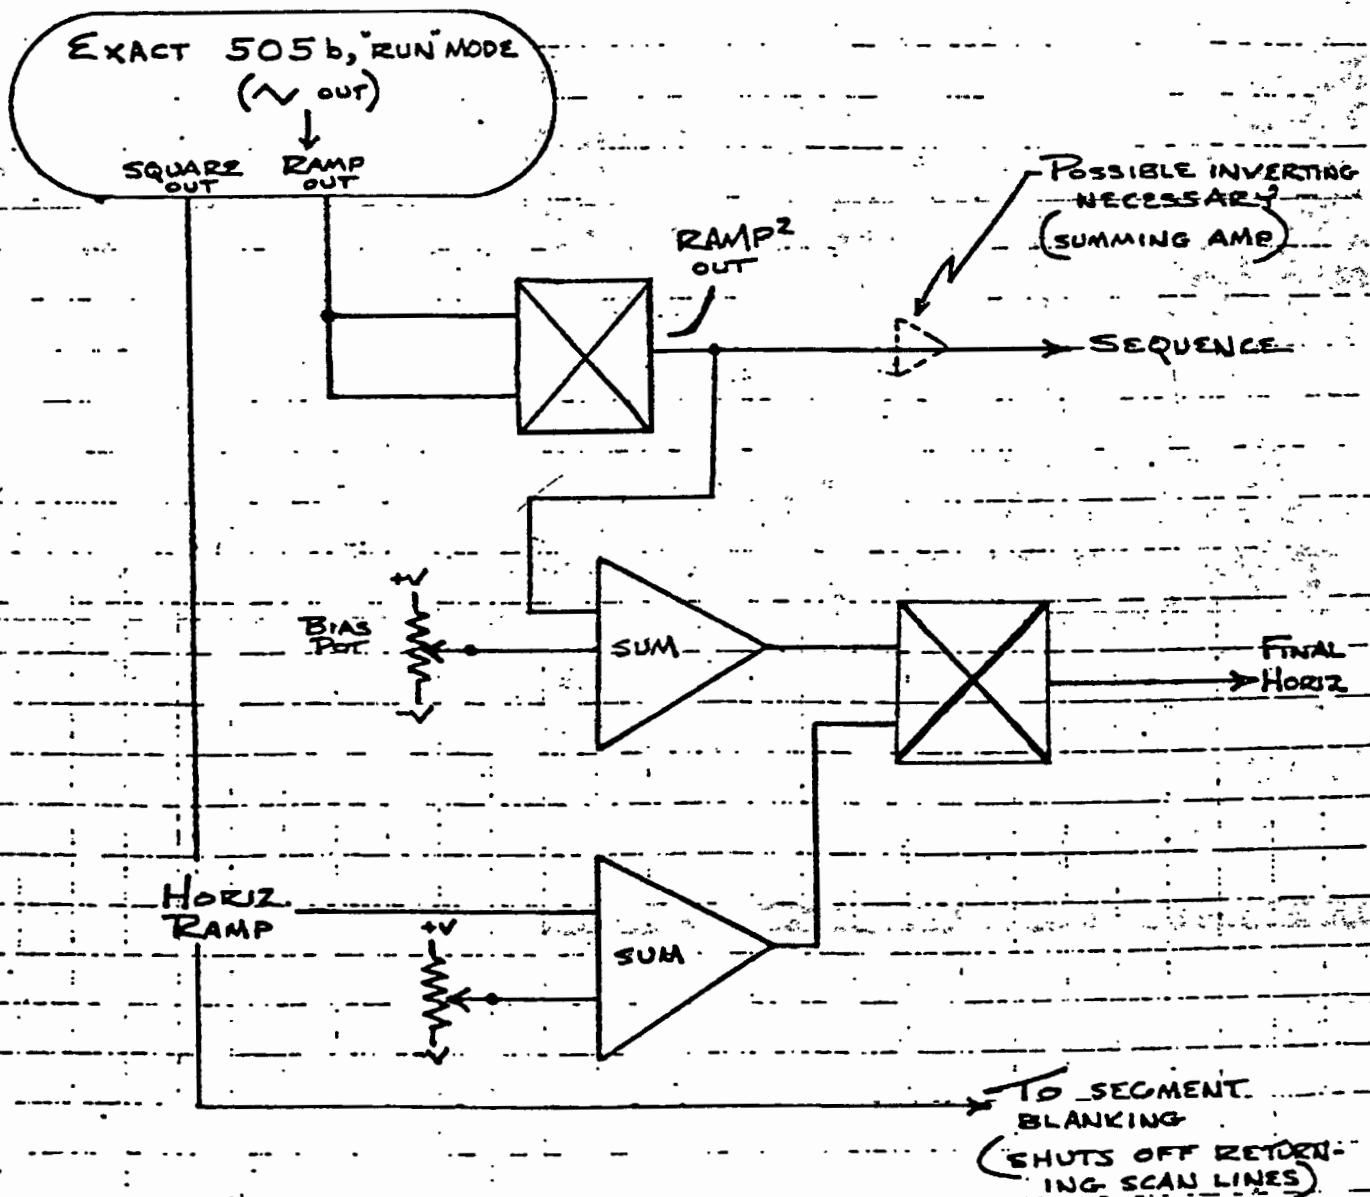 EXACT 505b, "RUN" MODE
(∿ OUT)
SQUARE
OUT
RAMP
OUT
POSSIBLE INVERTING
NECESSARY
(SUMMING AMP)
RAMP²
OUT
SEQUENCE
+V
BIAS
POT
-V
SUM
FINAL
HORIZ
HORIZ.
RAMP
+V
-V
SUM
TO SEGMENT
BLANKING
(SHUTS OFF RETURN-
ING SCAN LINES)